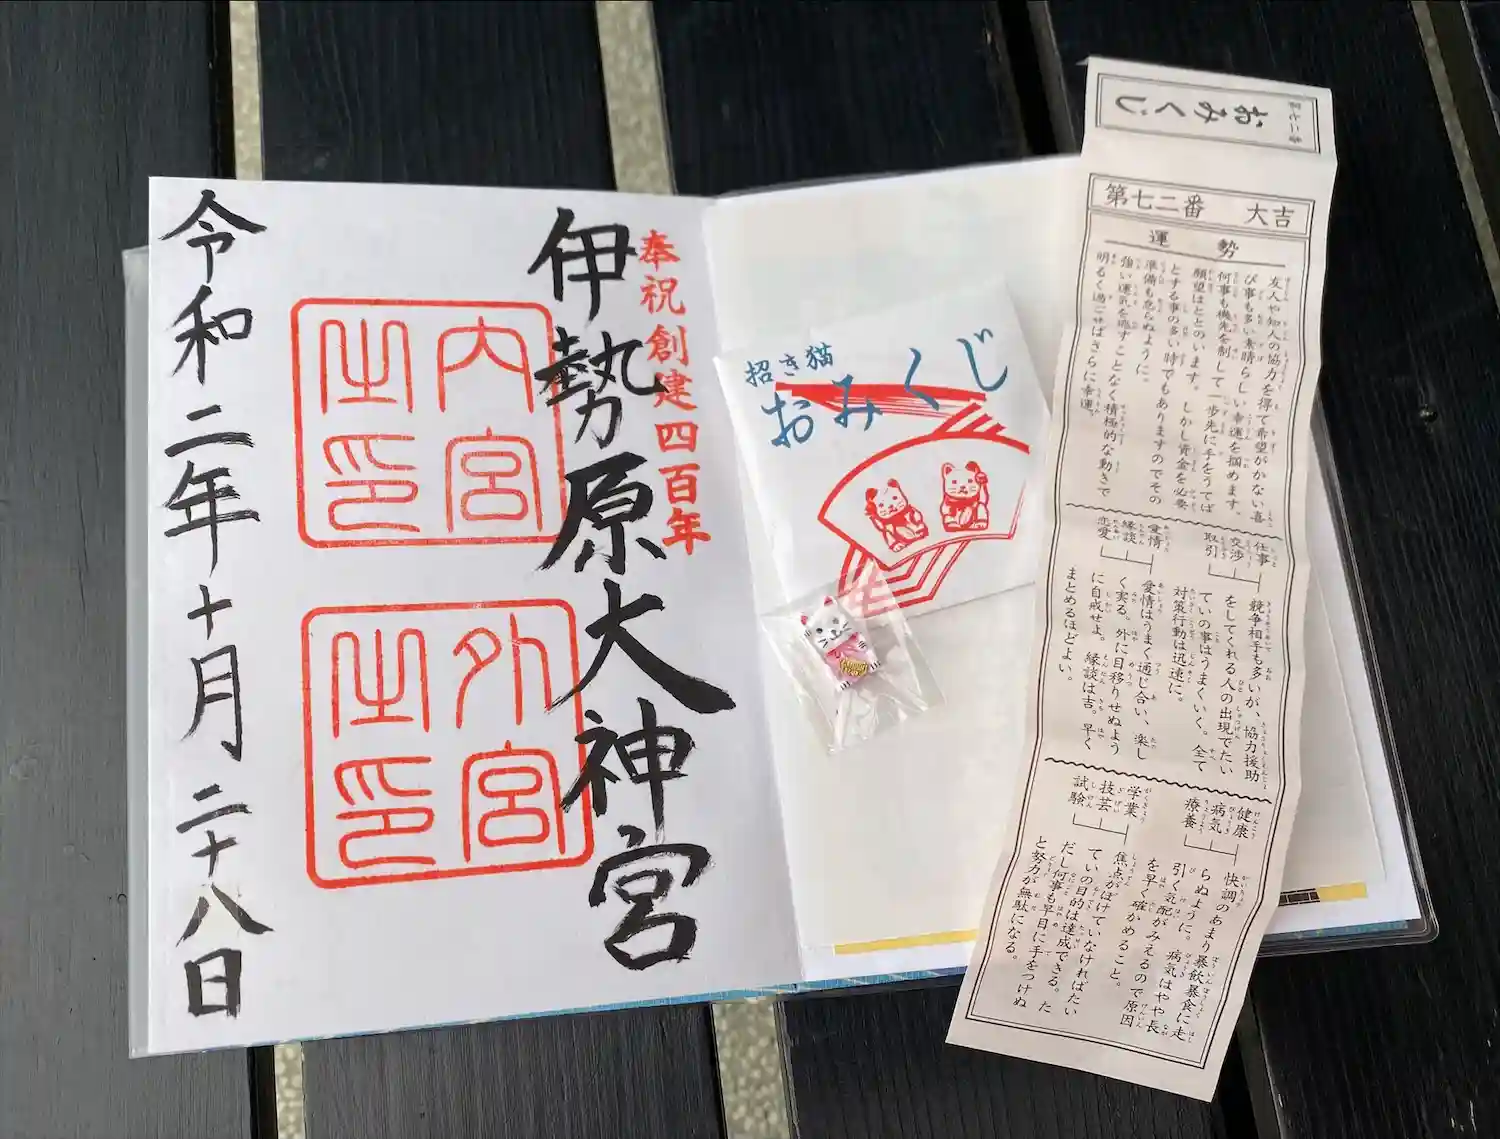 奉祝創建四百年
伊勢原大神宮
内宮
之印
外宮
之印
令和二年十月二十八日
招き猫
おみくじ
第七二番
おみくじ
第七二番 大吉
運勢
友人や知人の協力を得て希望がかない喜
び事も多い素晴らしい幸運を掴めます。
何事も機先を制して一歩先に手をうてば
願望はととのいます。しかし資金を必要
とする事の多い時でもありますのでその
準備も怠らぬように。
強い運気を逃すことなく積極的な動きで
明るく過ごせばさらに幸運。
仕事
交渉
取引
競争相手も多いが、協力援助
をしてくれる人の出現でたい
ていの事はうまくいく。全て
対策行動は迅速に。
愛情
縁談
恋愛
愛情はうまく通じ合い、楽し
く実る。外に目移りせぬよう
に自戒せよ。縁談は吉。早く
まとめるほどよい。
健康
病気
療養
快調のあまり暴飲暴食に走
らぬように。病気はやや長
引く気配がみえるので原因
を早く確かめること。
学業
技芸
試験
焦点がぼけていなければたい
ていの目的は達成できる。た
だし何事も早目に手をつけぬ
と努力が無駄になる。